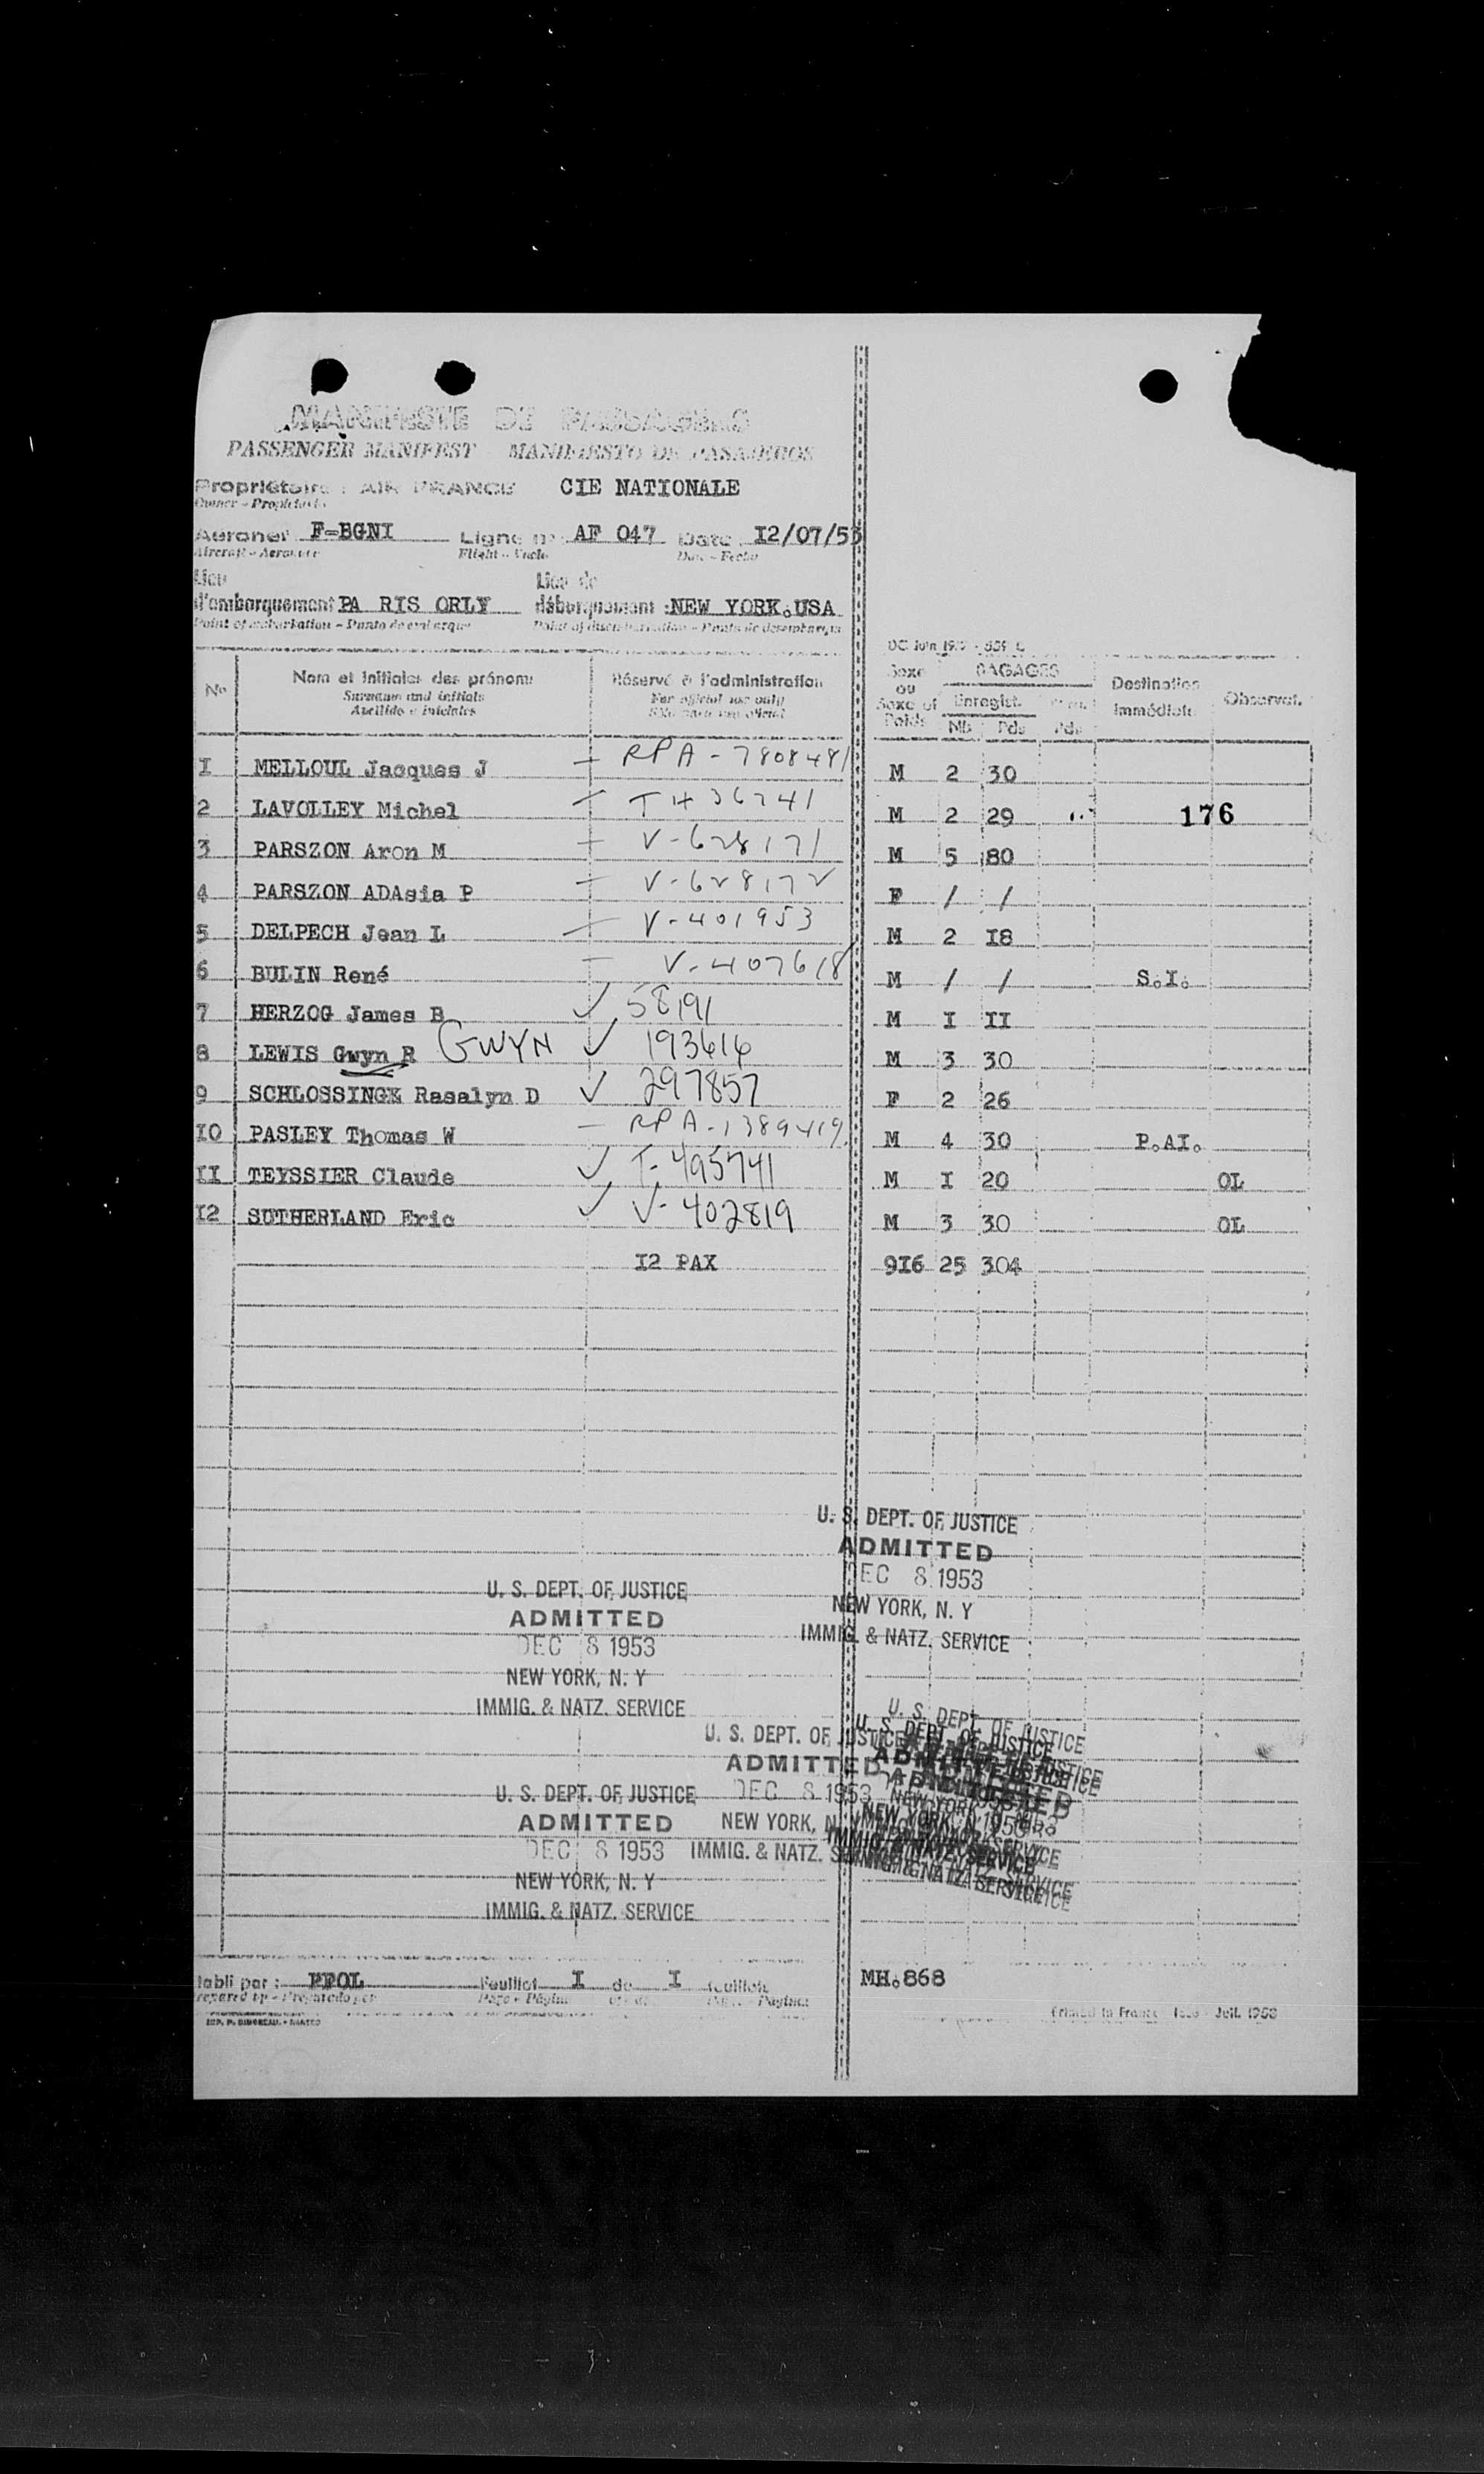 MANIFESTE DE PASSAGERS
PASSENGER MANIFEST MANIFIESTO DE PASAJEROS
Propriétaire : AIR FRANCE CIE NATIONALE
Owner - Propietario
Aéronef F-BGNI Ligne n° AF 047 Date I2/07/53
Aircraft - Aeronave Flight - Vuelo Date - Fecha
Lieu Lieu de
d'embarquement PA RIS ORLY débarquement : NEW YORK.USA
Point of embarkation - Punto de embarque Point of disembarkation - Punto de desembarque
No Nom et initiales des prénoms Réservé à l'administration Sexe ou Saxe et Poids BAGAGES Enregist. Nb Pds Pds Destination immédiate Observat.
Surname and initials For official use only
Apellido e iniciales
I MELLOUL Jacques J — RPA - 7808481 M 2 30
2 LAVOLLEY Michel — TH36741 M 2 29 176
3 PARSZON Aron M — V-628171 M 5 80
4 PARSZON ADAsia P — V-628172 F / /
5 DELPECH Jean L — V-401953 M 2 I8
6 BULIN René — V-407618 M / / S.I.
7 HERZOG James B ✓ 58191 M I II
8 LEWIS Gwyn R GWYN ✓ 193616 M 3 30
9 SCHLOSSINGE Rasalyn D ✓ 297857 F 2 26
IO PASLEY Thomas W — RPA-1389419 M 4 30 P.AI.
II TEYSSIER Claude ✓ T-495741 M I 20 OL
I2 SUTHERLAND Eric ✓ V-402819 M 3 30 OL
I2 PAX 9I6 25 304
U. S. DEPT. OF JUSTICE
ADMITTED
DEC 8 1953
NEW YORK, N. Y
IMMIG. & NATZ. SERVICE
U. S. DEPT. OF JUSTICE
ADMITTED
DEC 8 1953
NEW YORK, N. Y
IMMIG. & NATZ. SERVICE
U. S. DEPT. OF JUSTICE
ADMITTED
DEC 8 1953
NEW YORK, N. Y
IMMIG. & NATZ. SERVICE
U. S. DEPT. OF JUSTICE
ADMITTED
DEC 8 1953
NEW YORK, N. Y
IMMIG. & NATZ. SERVICE
U. S. DEPT. OF JUSTICE
U. S. DEPT. OF JUSTICE
NEW YORK
IMMIG. & NATZ. SERVICE
tabli par : PPOL Feuillet I de I feuillets MH.868
repared by - Preparado por Page - Página
Printed in France Juil. 1953